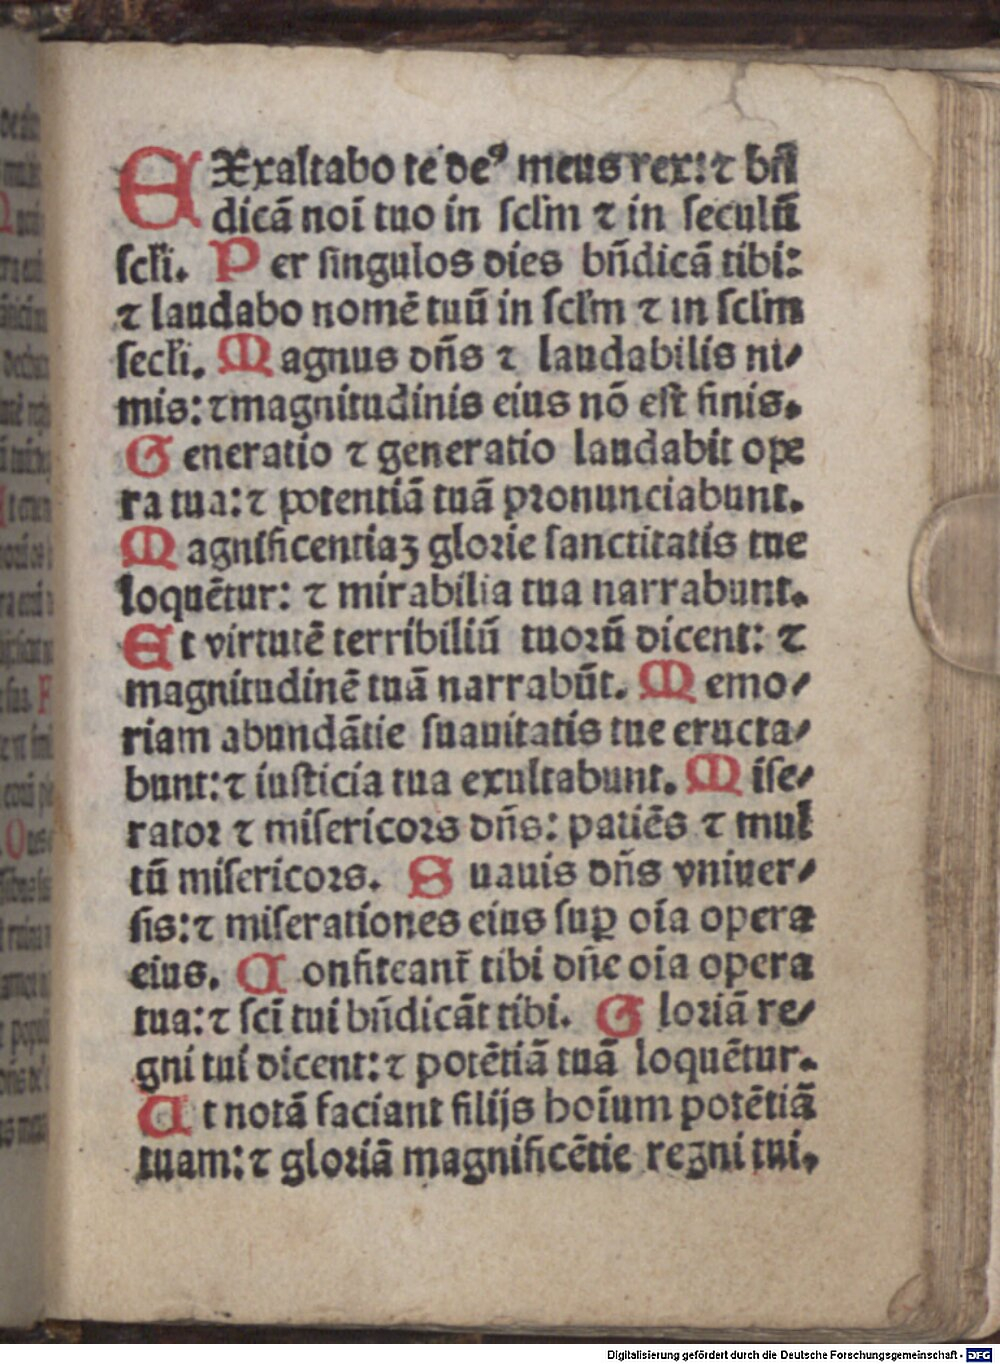 EXxaltabo te deꝰ meus rex: ⁊ bn̄
dicā noī tuo in ſcl'm ⁊ in ſeculū
ſcl'i. Per ſingulos dies bn̄dicā tibi:
⁊ laudabo nomē tuū in ſcl'm ⁊ in ſcl'm
ſecl'i. Magnus dn̄s ⁊ laudabilis ni⸗
mis: ⁊ magnitudinis eius nō eſt finis.
Generatio ⁊ generatio laudabit ope
ra tua: ⁊ potentiā tuā pronunciabunt.
Magnificentiaꝫ glorie ſanctitatis tue
loquētur: ⁊ mirabilia tua narrabunt.
Et virtutē terribiliū tuoꝛū dicent: ⁊
magnitudinē tuā narrabūt. Memo⸗
riam abundātie ſuauitatis tue eructa⸗
bunt: ⁊ iuſticia tua exultabunt. Miſe⸗
ratoꝛ ⁊ miſericoꝛs dn̄s: patiēs ⁊ mul
tū miſericoꝛs. Suauis dn̄s vniuer⸗
ſis: ⁊ miſerationes eius ſuꝑ oīa opera
eius. Confiteant̄ tibi dn̄e oīa opera
tua: ⁊ ſcī tui bn̄dicāt tibi. Gloꝛiā re⸗
gni tui dicent: ⁊ potētiā tuā loquētur.
Ut notā faciant filijs hoīum potētiā
tuam: ⁊ gloꝛiā magnificētie regni tui.
Digitalisierung gefördert durch die Deutsche Forschungsgemeinschaft - DFG